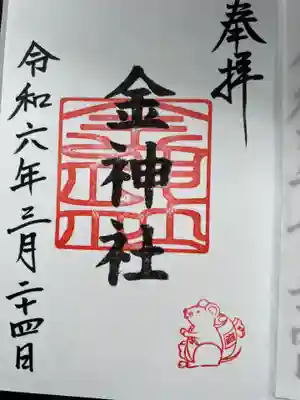 奉拝
金神社
令和六年三月二十四日